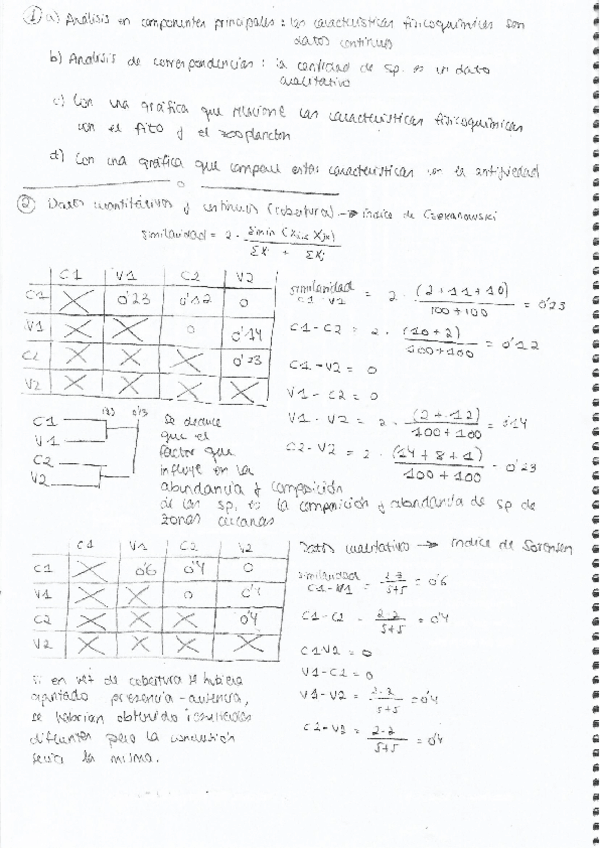 ① a) Análisis en componentes principales : las características fisicoquímicas son
datos continuos
b) Análisis de correspondencias : la cantidad de sp. es un dato
cualitativo
c) Con una gráfica que relacione las características fisicoquímicas
con el fito y el zooplancton
d) Con una gráfica que compare estas características con la antigüedad
② Datos cuantitativos y continuos (cobertura) → índice de Czekanowski
similaridad = 2 · Σmin (Xi, Xj) / ΣXi + ΣXj
C1 V1 C2 V2
C1 0'23 0'12 0
V1 0 0'14
C2 0'23
V2
similaridad C1-V1 = 2 · (2+11+10) / 100+100 = 0'23
C1-C2 = 2 · (10+2) / 100+100 = 0'12
C1-V2 = 0
V1-C2 = 0
V1-V2 = 2 · (2+12) / 100+100 = 0'14
C2-V2 = 2 · (14+8+1) / 100+100 = 0'23
C1
V1
C2
V2
Se deduce
que el
factor que
influye en la
abundancia y composición
de las sp. es la composición y abundancia de sp de
zonas cercanas
C1 V1 C2 V2
C1 0'6 0'4 0
V1 0 0'4
C2 0'4
V2
Datos cualitativo → índice de Sorensen
similaridad C1-V1 = 2·3 / 5+5 = 0'6
C1-C2 = 2·2 / 5+5 = 0'4
C1V2 = 0
V1-C2 = 0
V1-V2 = 2·2 / 5+5 = 0'4
C2-V2 = 2·2 / 5+5 = 0'4
Si en vez de cobertura se hubiera
apuntado presencia-ausencia,
se habrían obtenido resultados
diferentes pero la conclusión
sería la misma.